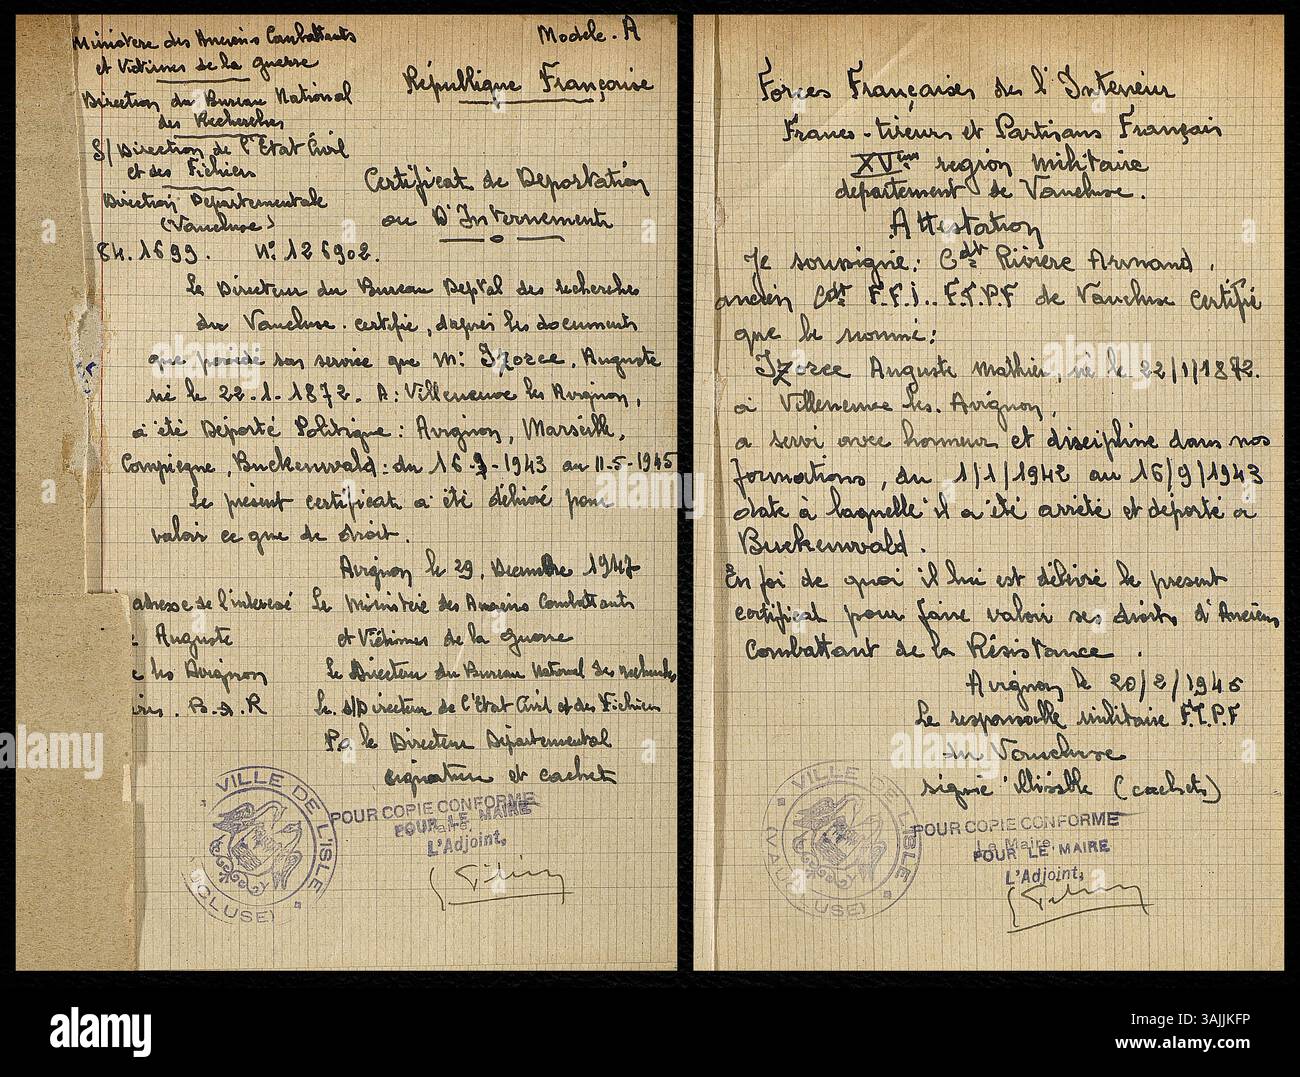 Ministère des Anciens Combattants
et Victimes de la guerre
Direction du Bureau National
des Recherches
S/Direction de l'Etat Civil
et des Fichiers
Direction Départementale
(Vaucluse)
84.1699. N° 126902.
Modèle. A
République Française
Certificat de Déportation
ou D'Internement
Le Directeur du Bureau Deptal des recherches
du Vaucluse. certifie, d'après les documents
que possède son service que M: Izorce, Auguste
né le 22.1.1872. A: Villeneuve les Avignon,
a été Déporté Politique: Avignon, Marseille,
Compiegne, Buckenwald: du 16-9-1943 au 11-5-1945
Le présent certificat a été délivré pour
valoir ce que de droit.
Avignon le 29. Decembre 1947
adresse de l'interessé Le Ministère des Anciens Combattants
Auguste et Victimes de la guerre
les Avignon Le Directeur du Bureau National des recherches
B.d.R Le S/Directeur de l'Etat Civil et des Fichiers
Po le Directeur Départemental
signature et cachets
VILLE DE L'ISLE
CLUSE)
POUR COPIE CONFORME
POUR LE MAIRE
L'Adjoint,
Forces Françaises de l'Interieur
Francs-tireurs et Partisans Français
XVème region militaire
departement de Vaucluse.
Attestation
Je soussigné: Cdt Rivière Armand,
ancien Cdt F.F.I.. F.T.P.F de Vaucluse certifie
que le nommé:
Izorce Auguste Mathieu, né le 22/1/1872.
a Villeneuve les. Avignon,
a servi avec honneur et discipline dans nos
formations, du 1/1/1942 au 16/9/1943
date à laquelle il a été arrété et déporté a
Buckenwald.
En foi de quoi il lui est délivré le present
certificat pour faire valoir ses droits d'Anciens
Combattant de la Résistance.
Avignon le 20/2/1946
Le responsable militaire F.T.P.F
du Vaucluse
signé illisible (cachets)
VILLE DE L'ISLE
(VAUCLUSE)
POUR COPIE CONFORME
Le Maire,
POUR LE MAIRE
L'Adjoint,
alamy
Image ID: 3AJJKFP
www.alamy.com